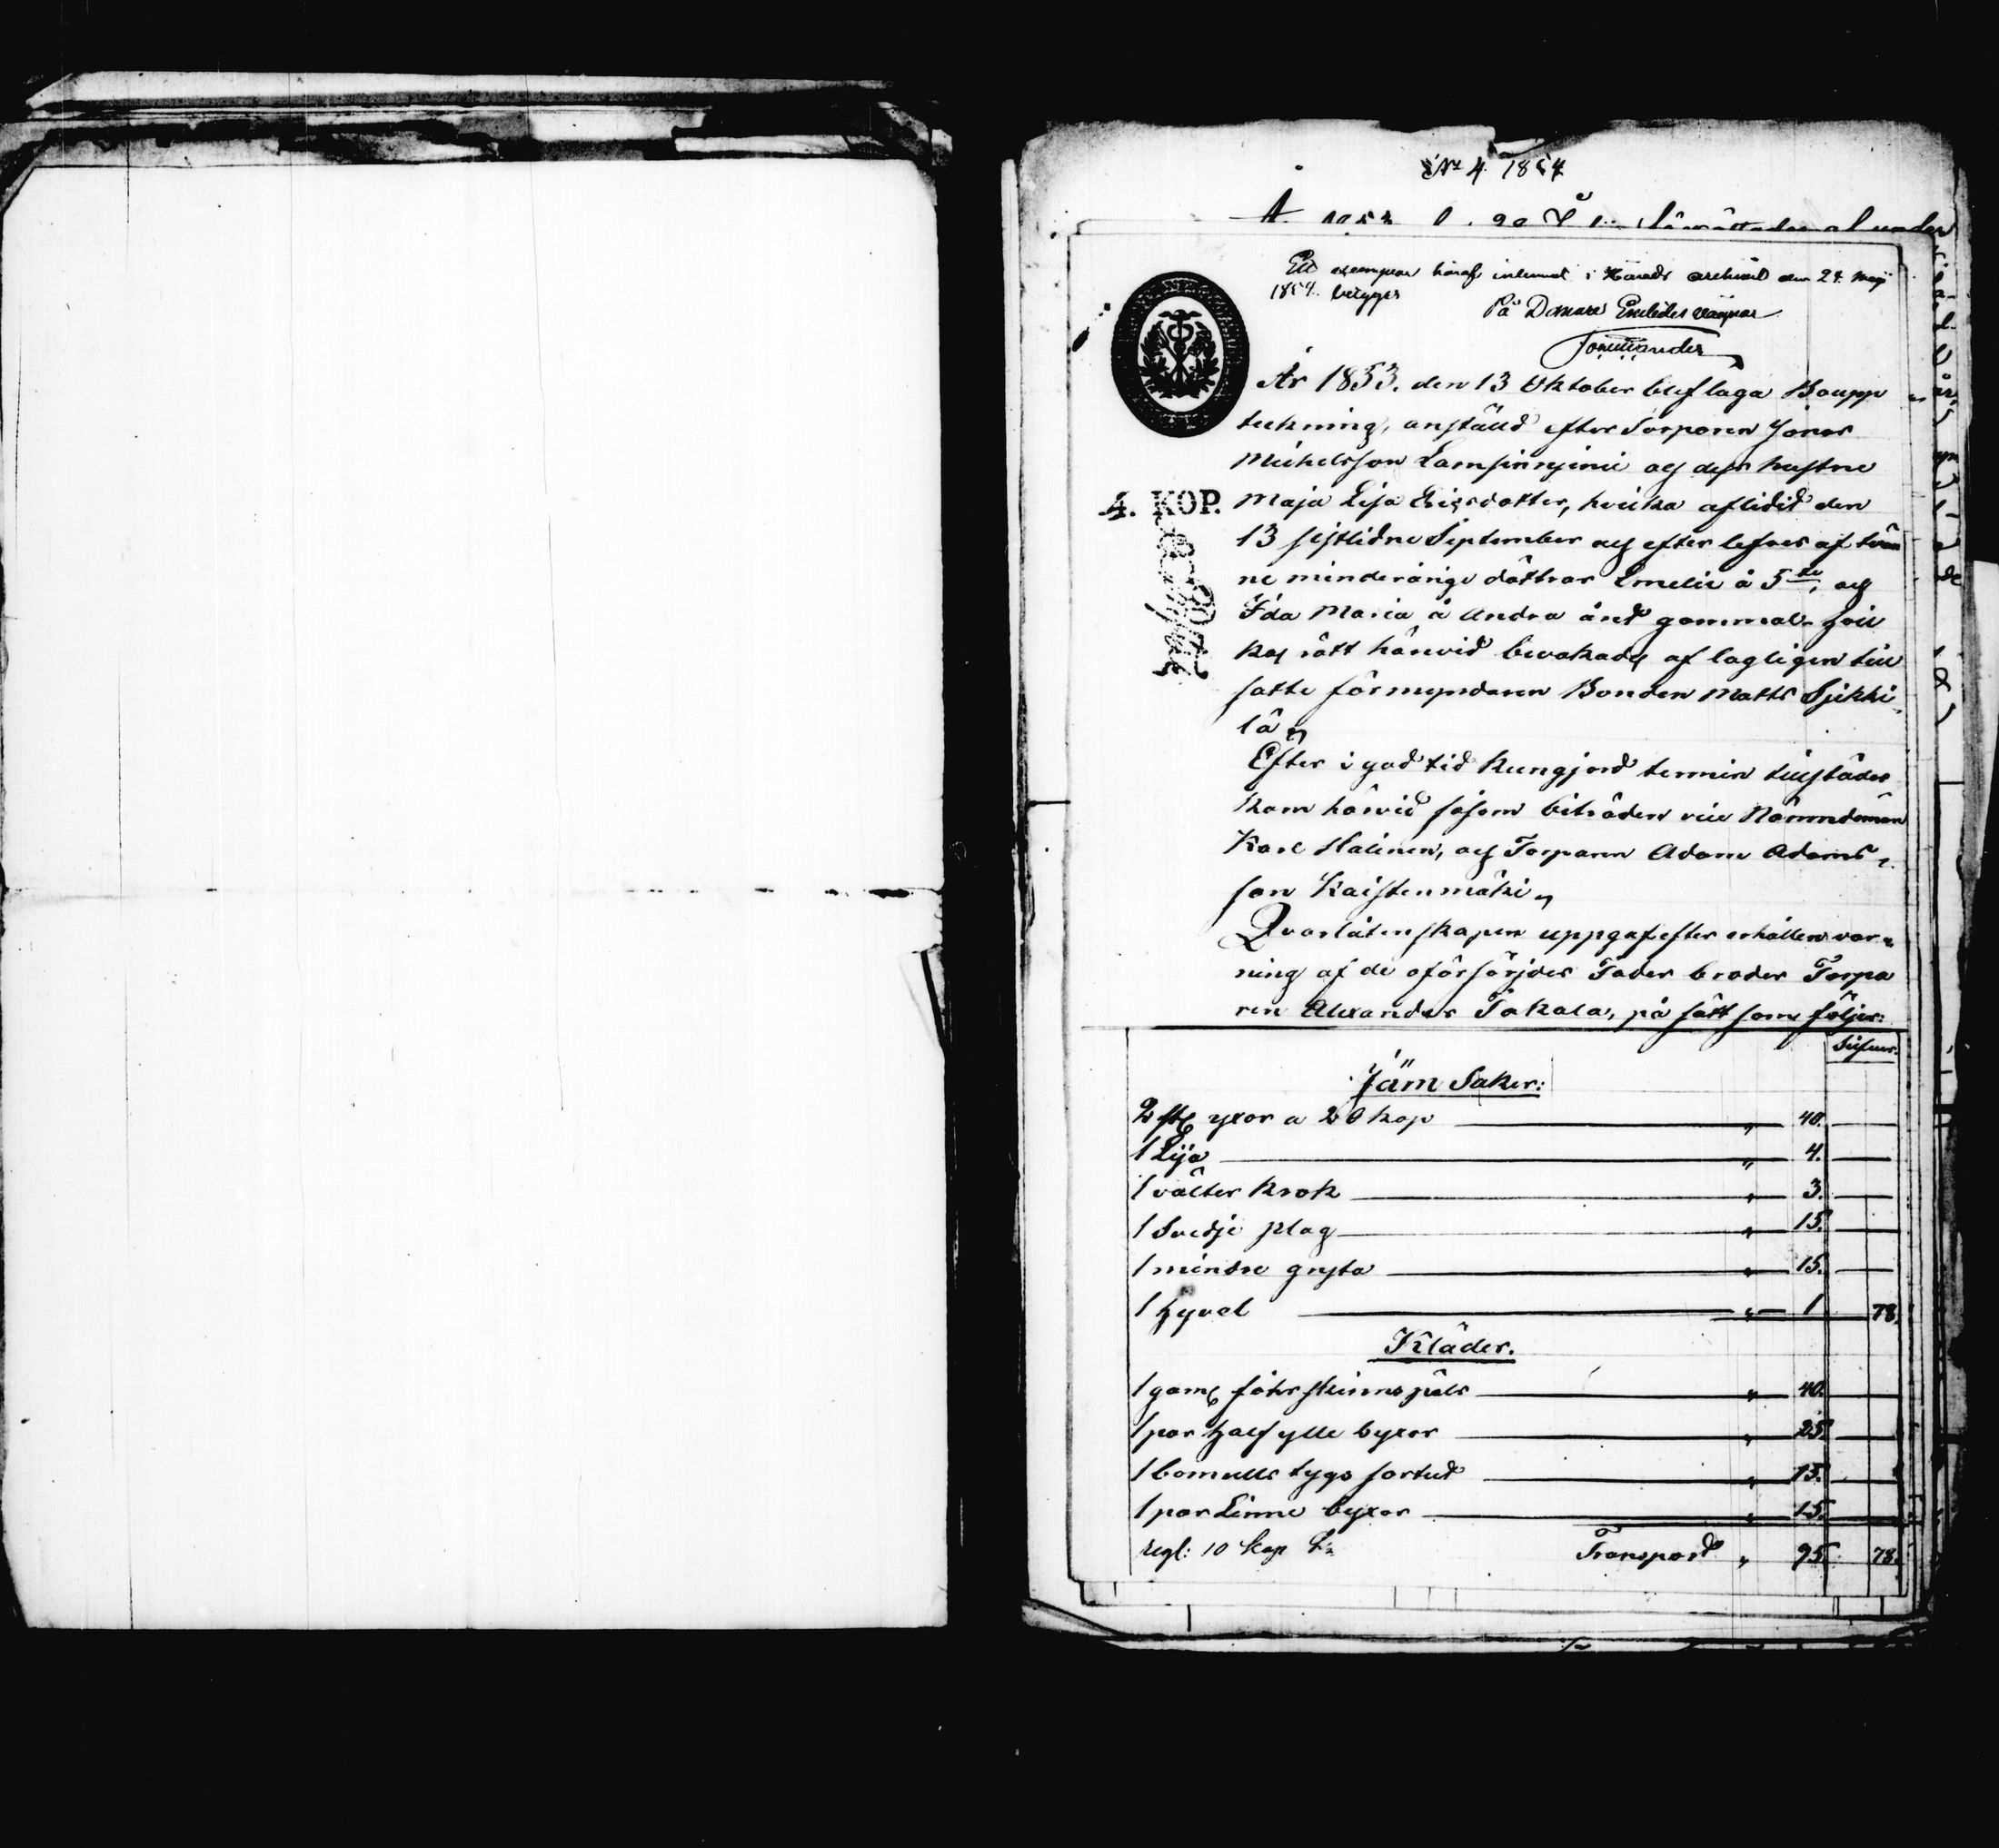 No 4. 1854
Ett exemplar häraf inlemnat i Härads archivet den 24 Maji
1854. betygar
På Domare Embetes vägnar
År 1853. den 13 Oktober blef laga Boupp
teckning, anstäld efter Torparen Jonas
Michelsson Lampinnjemi och dess hustru
4. KOP. Maja Lisa Ericsdotter, hvilka aflidit den
13 sistlidne September och efter lefves af tvän
ne minderåriga döttrar Emelie å 5te, och
Ida Maria å Andra året gammal hvil
kas rätt härvid bevakades af lagligen till
satte förmyndaren Bonden Matts Sjikki
lä
Efter i god tid kungjord termin tillstädes
kom härvid såsom biträden vice Nämndeman
Karl Halinen, och Torparn Adam Adams
son Kaistenmäki
Qvarlåtenskapen uppgaf efter erhållen var
ning af de oförsörjdes Fader broder Torpa
ren Alexander Takala, på sätt som följer:
Silfver.
Järn Saker:
2 st yxor a 20 kop " 40.
1 Lija " 4.
1 välter krok " 3.
1 Svedje plog " 15.
1 mindre gryta " 15.
1 hyvel " 1 78.
Kläder.
1 gam fåhrskinns päls " 40.
1 par half ylle byxor " 25.
1 bomulls tygs sortut " 15.
1 par Linne byxor " 15.
10 kop Transport " 95. 78.